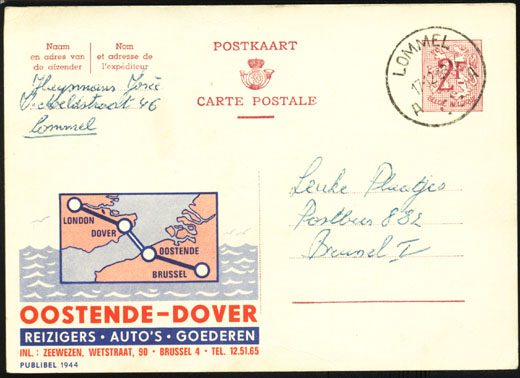 Naam
en adres van
de afzender
Nom
et adresse de
l'expéditeur
Heynmans José
46
Lommel
POSTKAART
CARTE POSTALE
LOMMEL
A
2F
Leuke Plaatjes
Postbus 832
Brussel I
LONDON
DOVER
OOSTENDE
BRUSSEL
OOSTENDE-DOVER
REIZIGERS · AUTO'S · GOEDEREN
INL.: ZEEWEZEN, WETSTRAAT, 90 · BRUSSEL 4 · TEL. 12.51.65
PUBLIBEL 1944